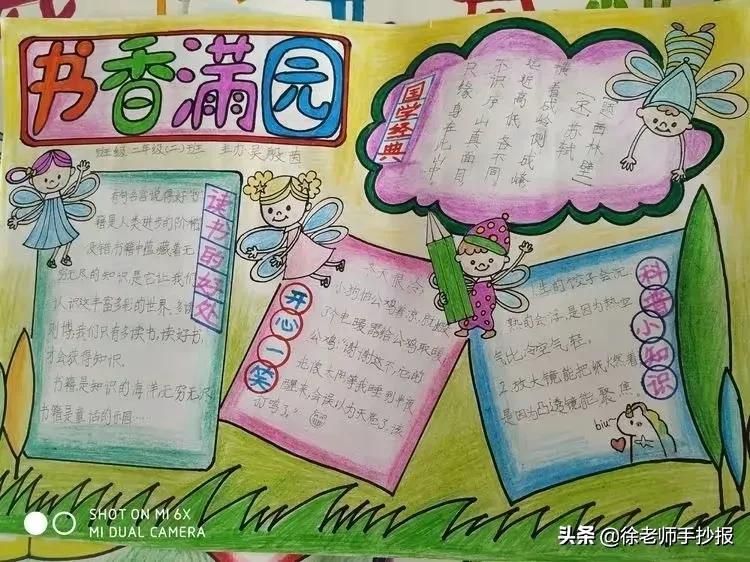 书香满园
班级 二年级(二)班 主办 吴殷茵
读书的好处
有句名言说得好:书
籍是人类进步的阶梯
及错书籍中蕴藏着无
穷无尽的知识是它让我们
认识这丰富多彩的世界.多读
则博,我们只有多读书,读好书,
才会获得知识.
书籍是知识的海洋,无穷无尽
书籍是童话的乐园……
国学经典
题西林壁
[宋]苏轼
横看成岭侧成峰
远近高低各不同
不识庐山真面目
只缘身在此山中.
开心一笑
冬天很冷,
小狗怕公鸡着凉,所以
个电暖器给公鸡取暖
公鸡:"谢谢这个,它的
光波太 等我睡到半夜
醒来,会误以为天亮了,该
打鸣了."
科普小知识
1.生的饺子会沉,
熟的会浮,是因为热空
气比冷空气轻.
2.放大镜能把纸火然着
是因为凸透镜能聚焦.
biu~
SHOT ON MI 6X
MI DUAL CAMERA
头条@徐老师手抄报